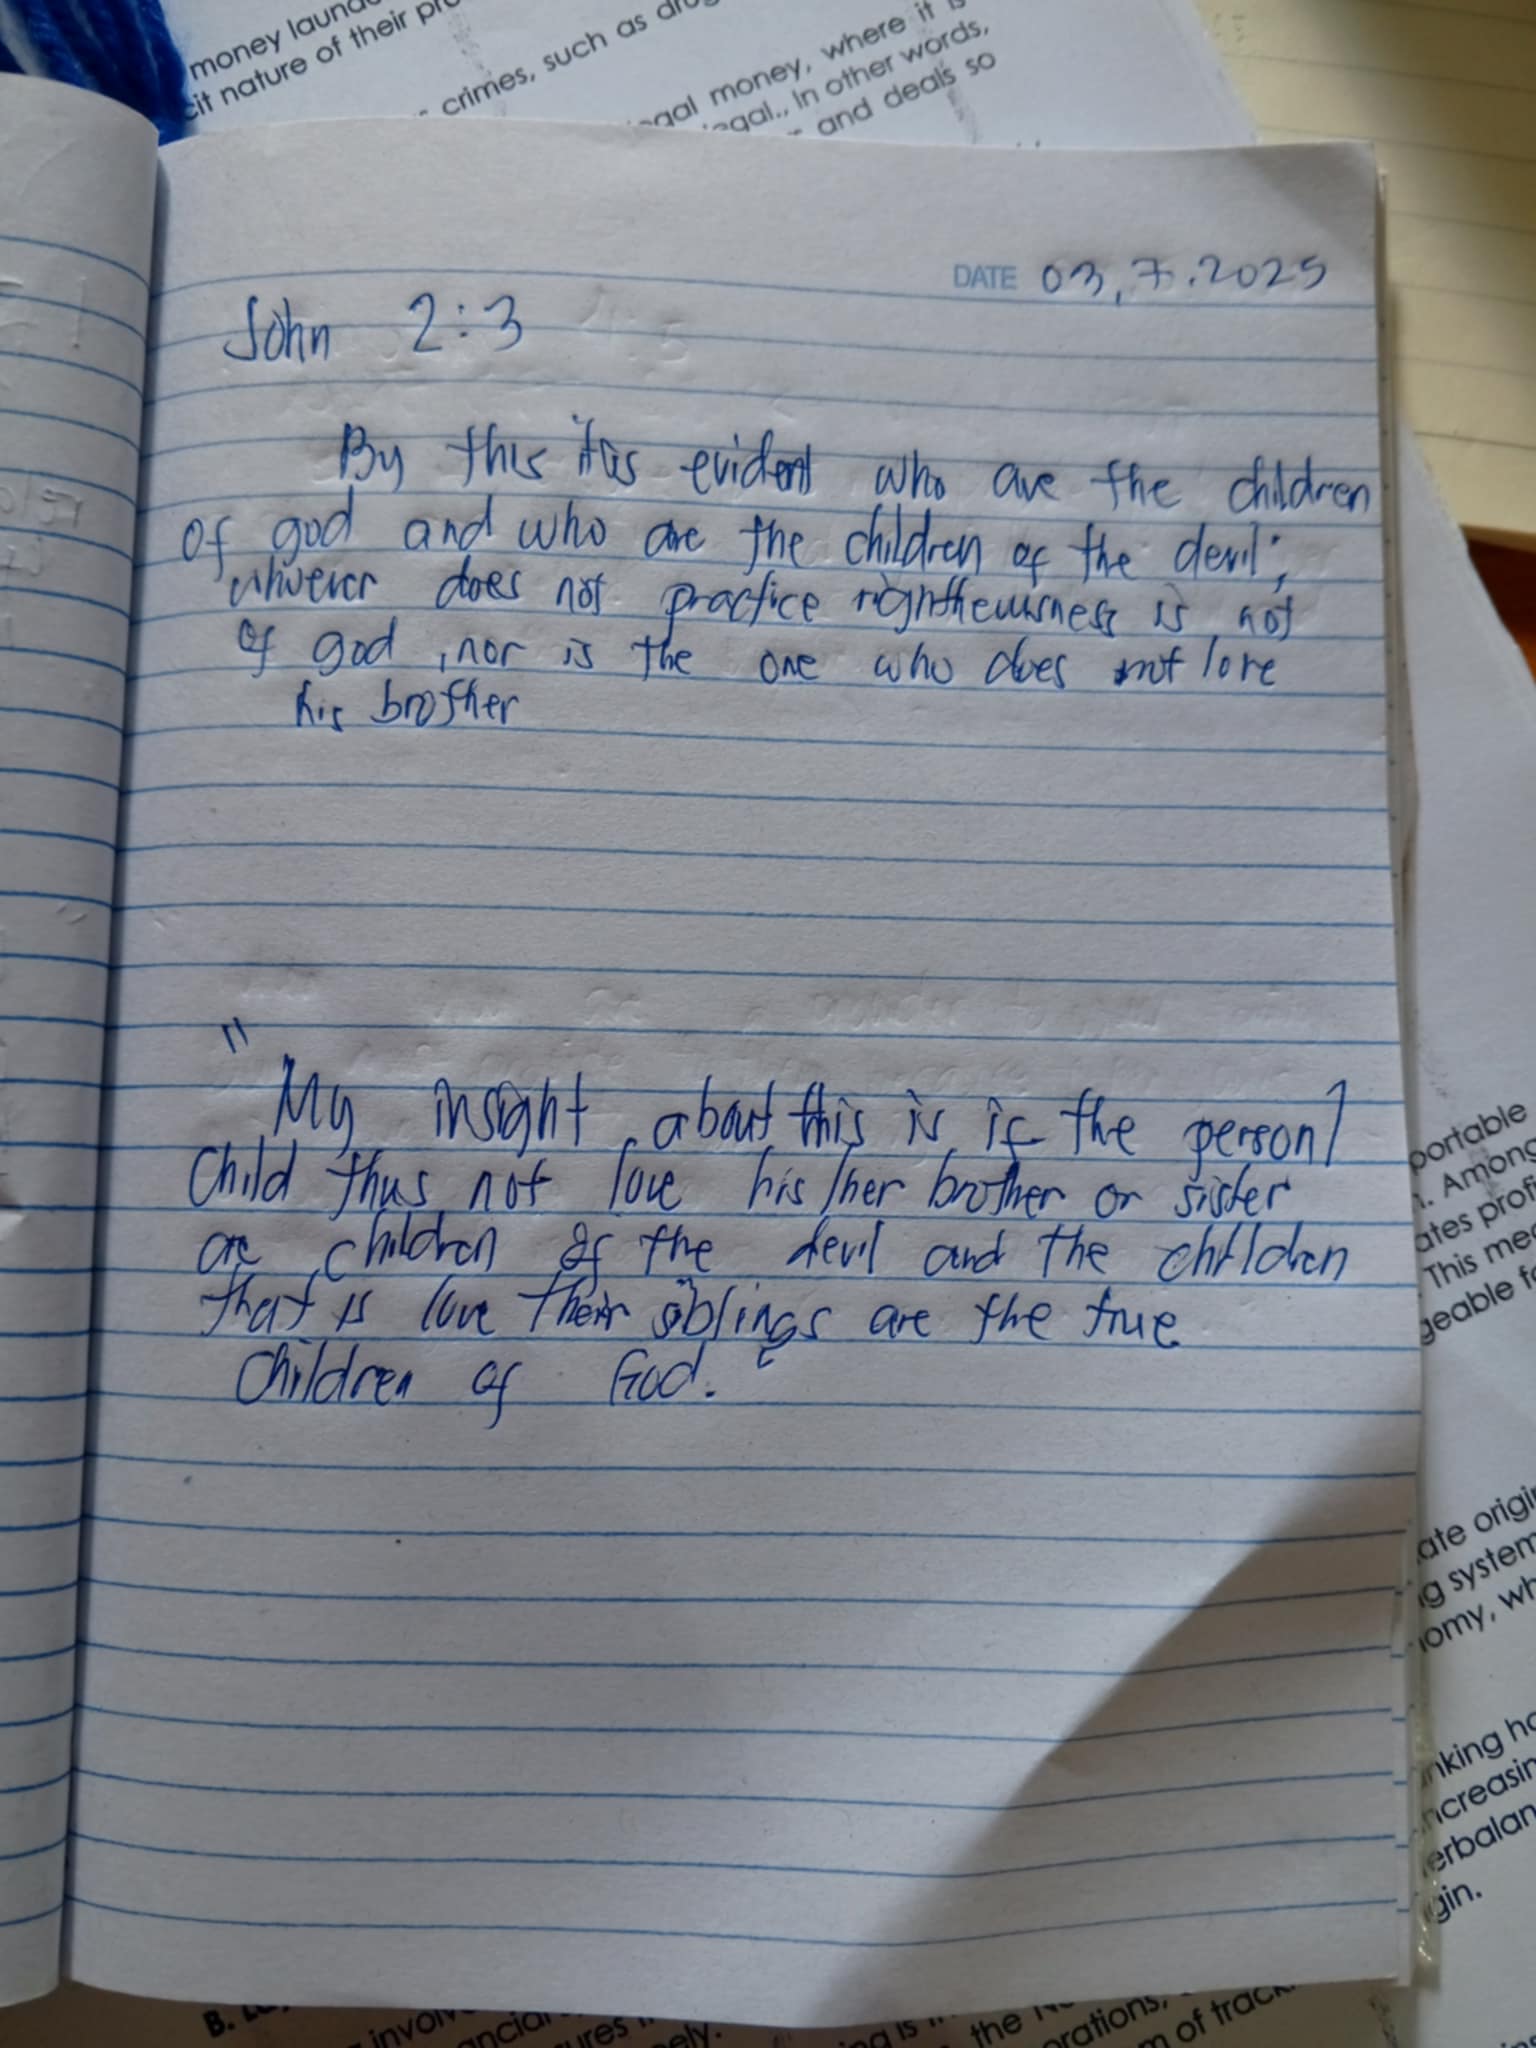 money laund
cit nature of their pr
crimes, such as drug
gal money, where it is
egal., In other words,
and deals so
DATE 03,7.2025
John 2:3
By this itis evident who are the children
of god and who are the children of the devil;
whoever does not practice righthewsness is not
of god , nor is the one who does not love
his brother
" My insight about this is if the person /
Child thus not love his/her brother or sister
are children of the devil and the children
that is love their siblings are the true
Children of God. "
portable
. Among
ates profi
This mea
geable fo
ate origin
g system
omy, wh
nking ho
ncreasin
erbalan
gin.
B. La
involv
ancial
ures i
ely.
ng is in
the N
orations,
m of track